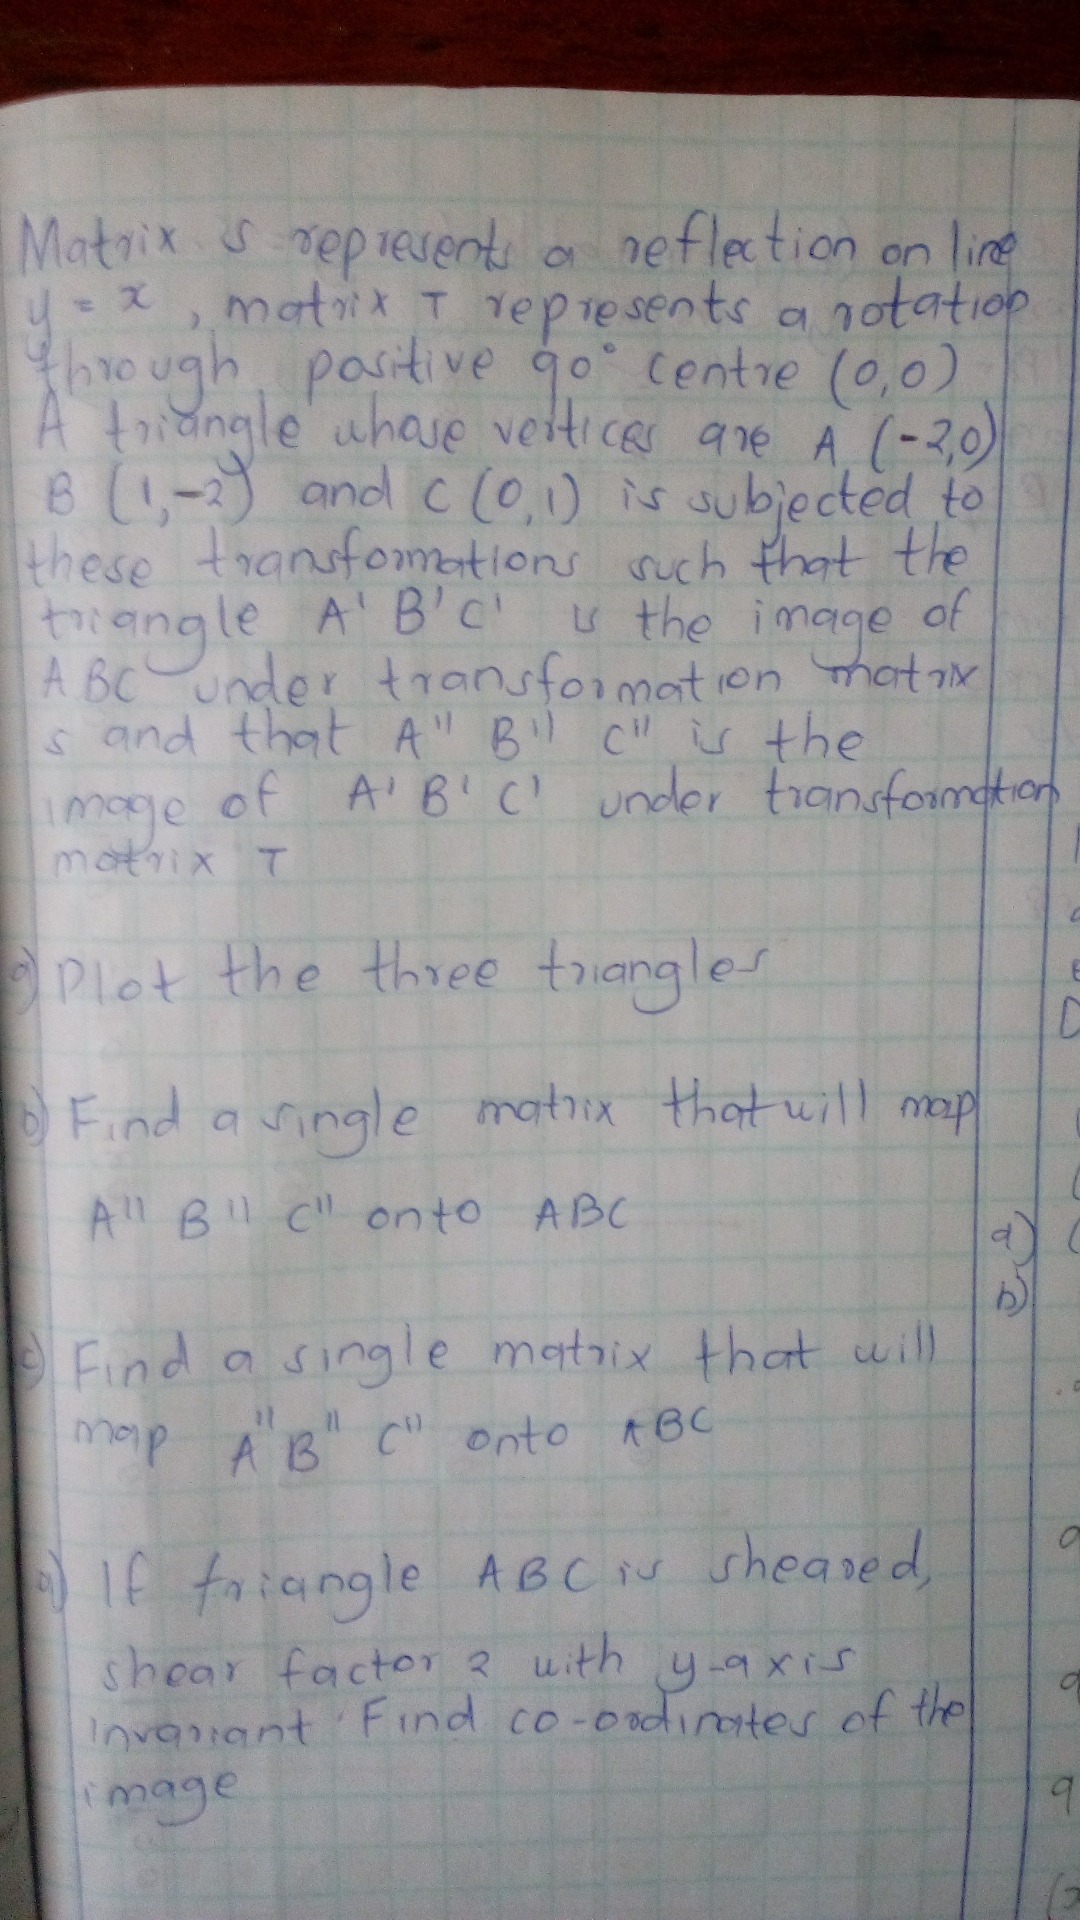 Matrix s represents a reflection on line
y = x , matrix T represents a rotation
through positive 90° centre (0,0)
A triangle whose vertices are A (-2,0)
B (1,-2) and C (0,1) is subjected to
these transformations such that the
triangle A' B' C' is the image of
ABC under transformation matrix
s and that A" B" C" is the
image of A' B' C' under transformation
matrix T
a) Plot the three triangles
b) Find a single matrix that will map
A" B" C" onto ABC
a)
b)
c) Find a single matrix that will
map A" B" C" onto ABC
d) If triangle ABC is sheared,
shear factor 2 with y-axis
invariant Find co-ordinates of the
image